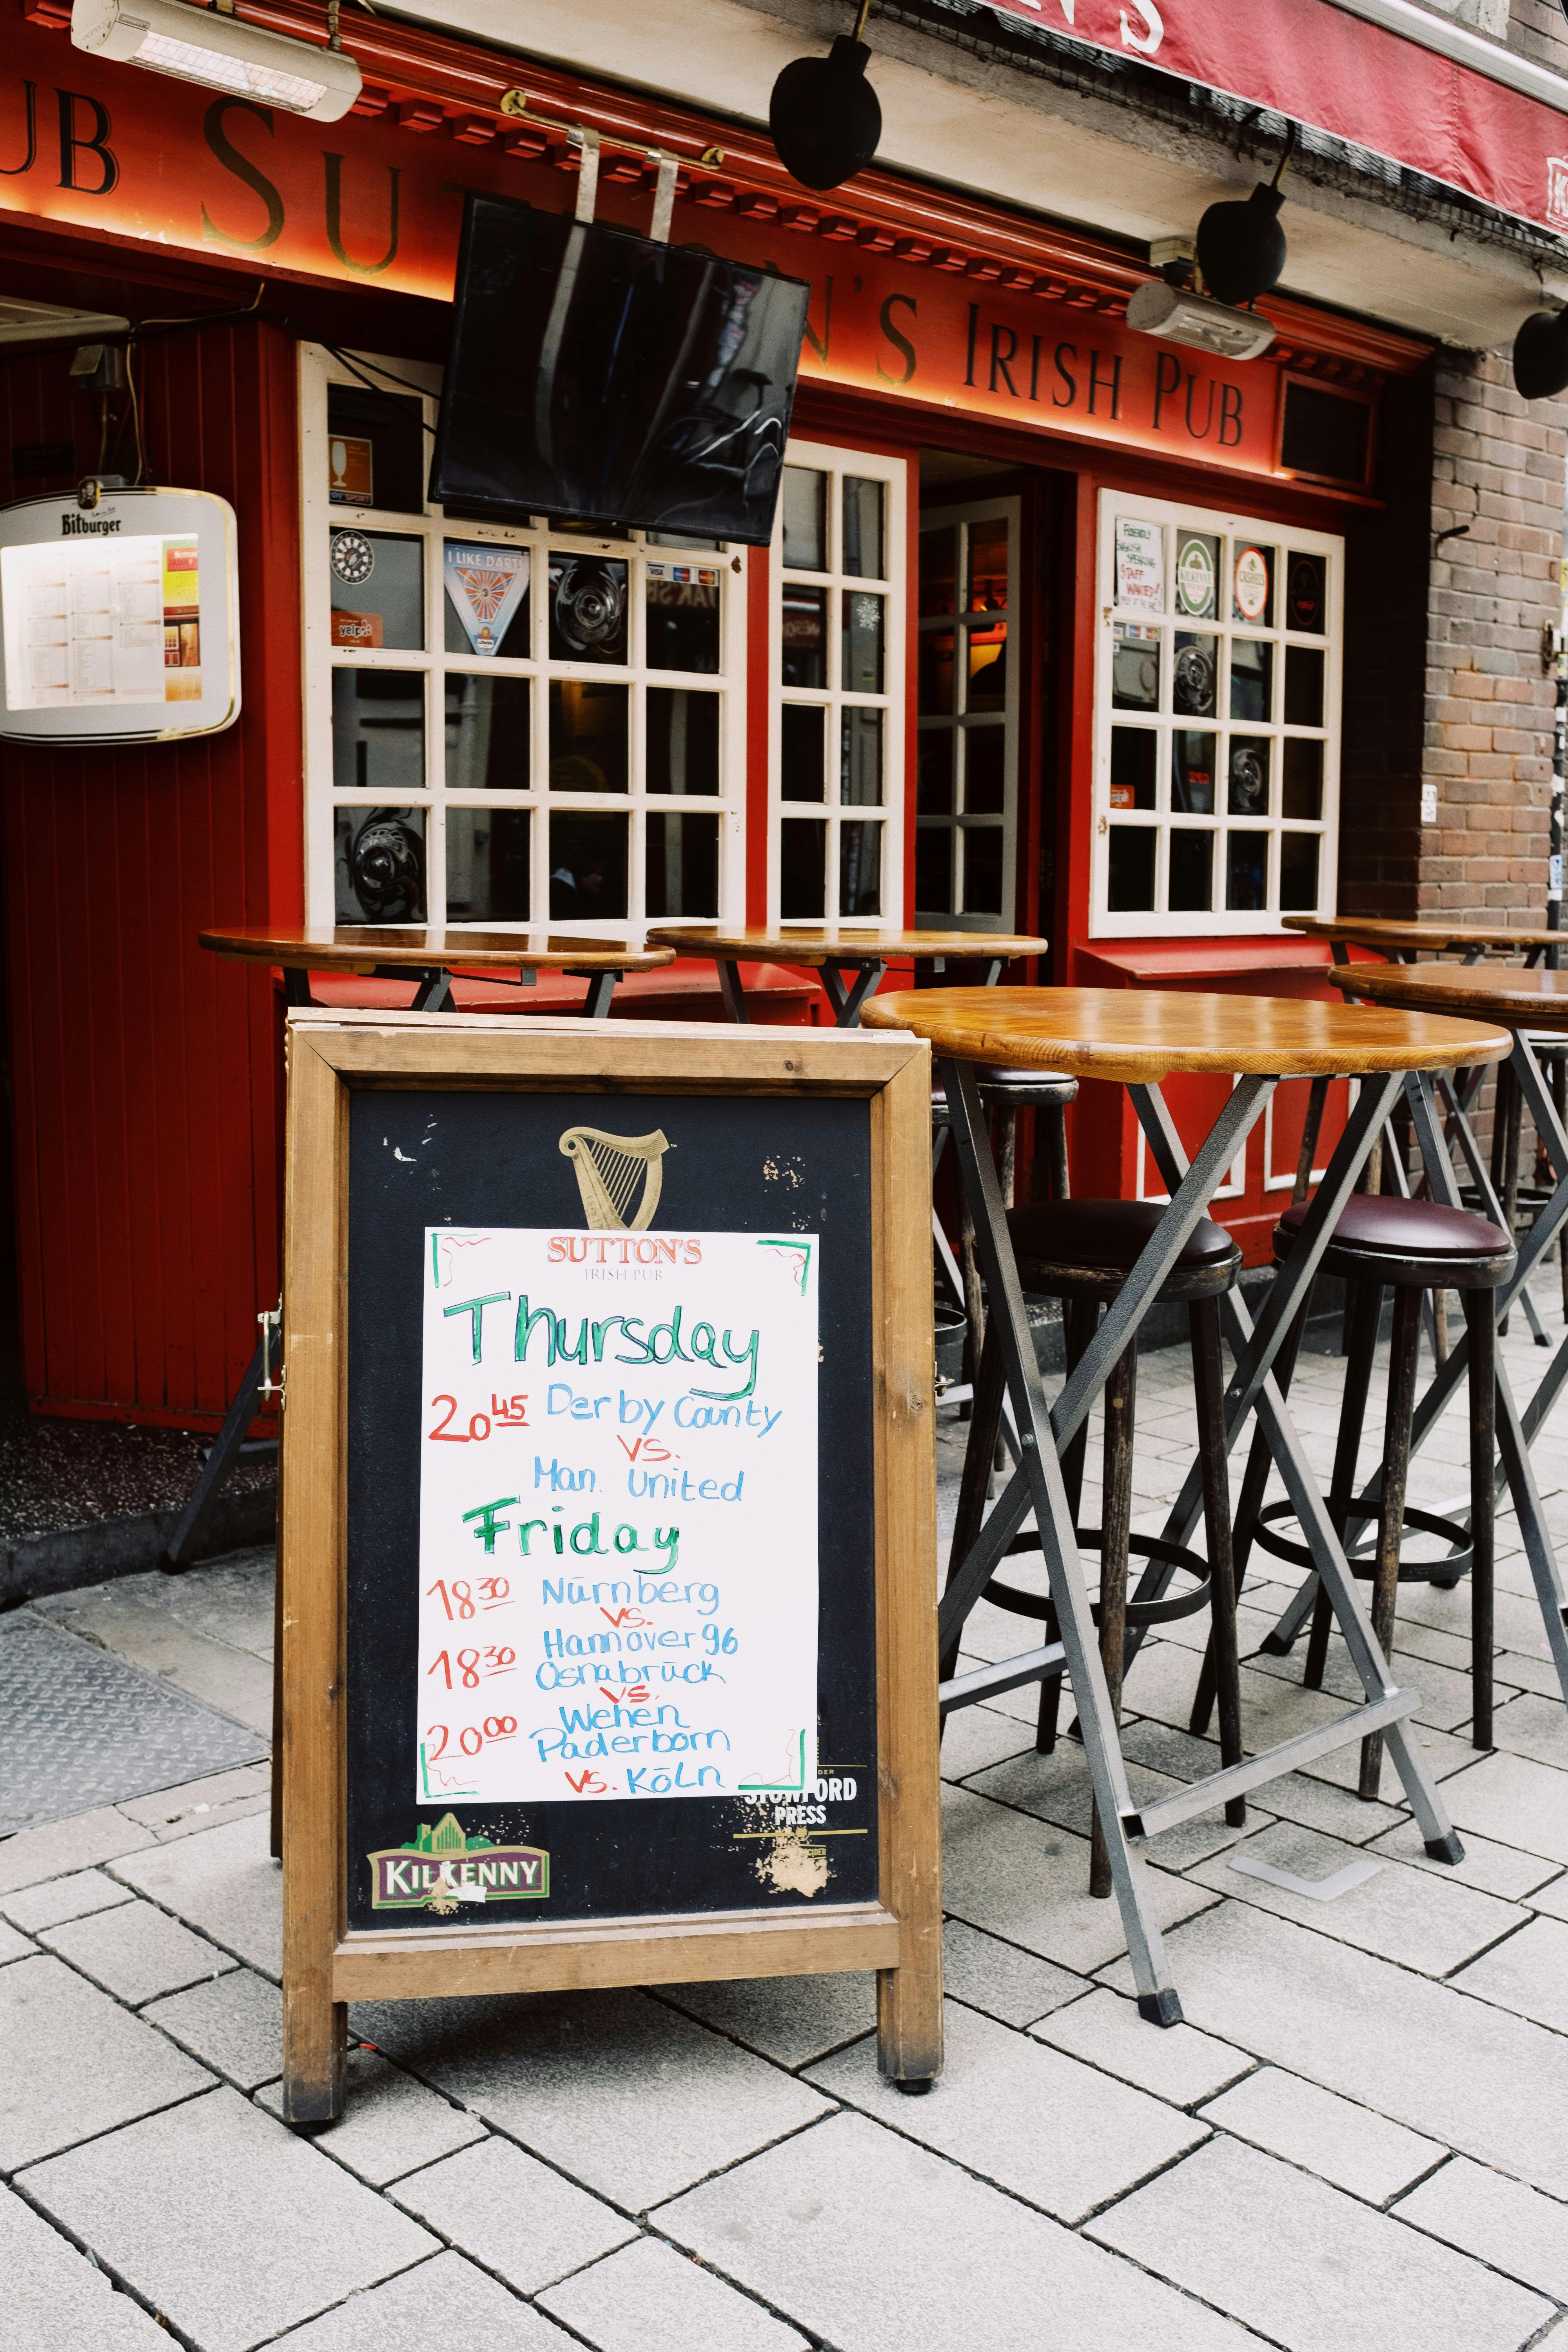 N'S
UB SU N'S IRISH PUB
Bitburger
I LIKE DART!
yelp
VISA
FRIENDLY
ENGLISH
SPEAKING
STAFF
WANTED!
KILKENNY
SUTTON'S
IRISH PUB
Thursday
20 45 Derby County
VS.
Man. United
Friday
18 30 Nürnberg
VS.
Hannover 96
18 30 Osnabrück
VS.
Wehen
20 00 Paderborn
VS. Köln
STOWFORD
PRESS
CIDER
KILKENNY